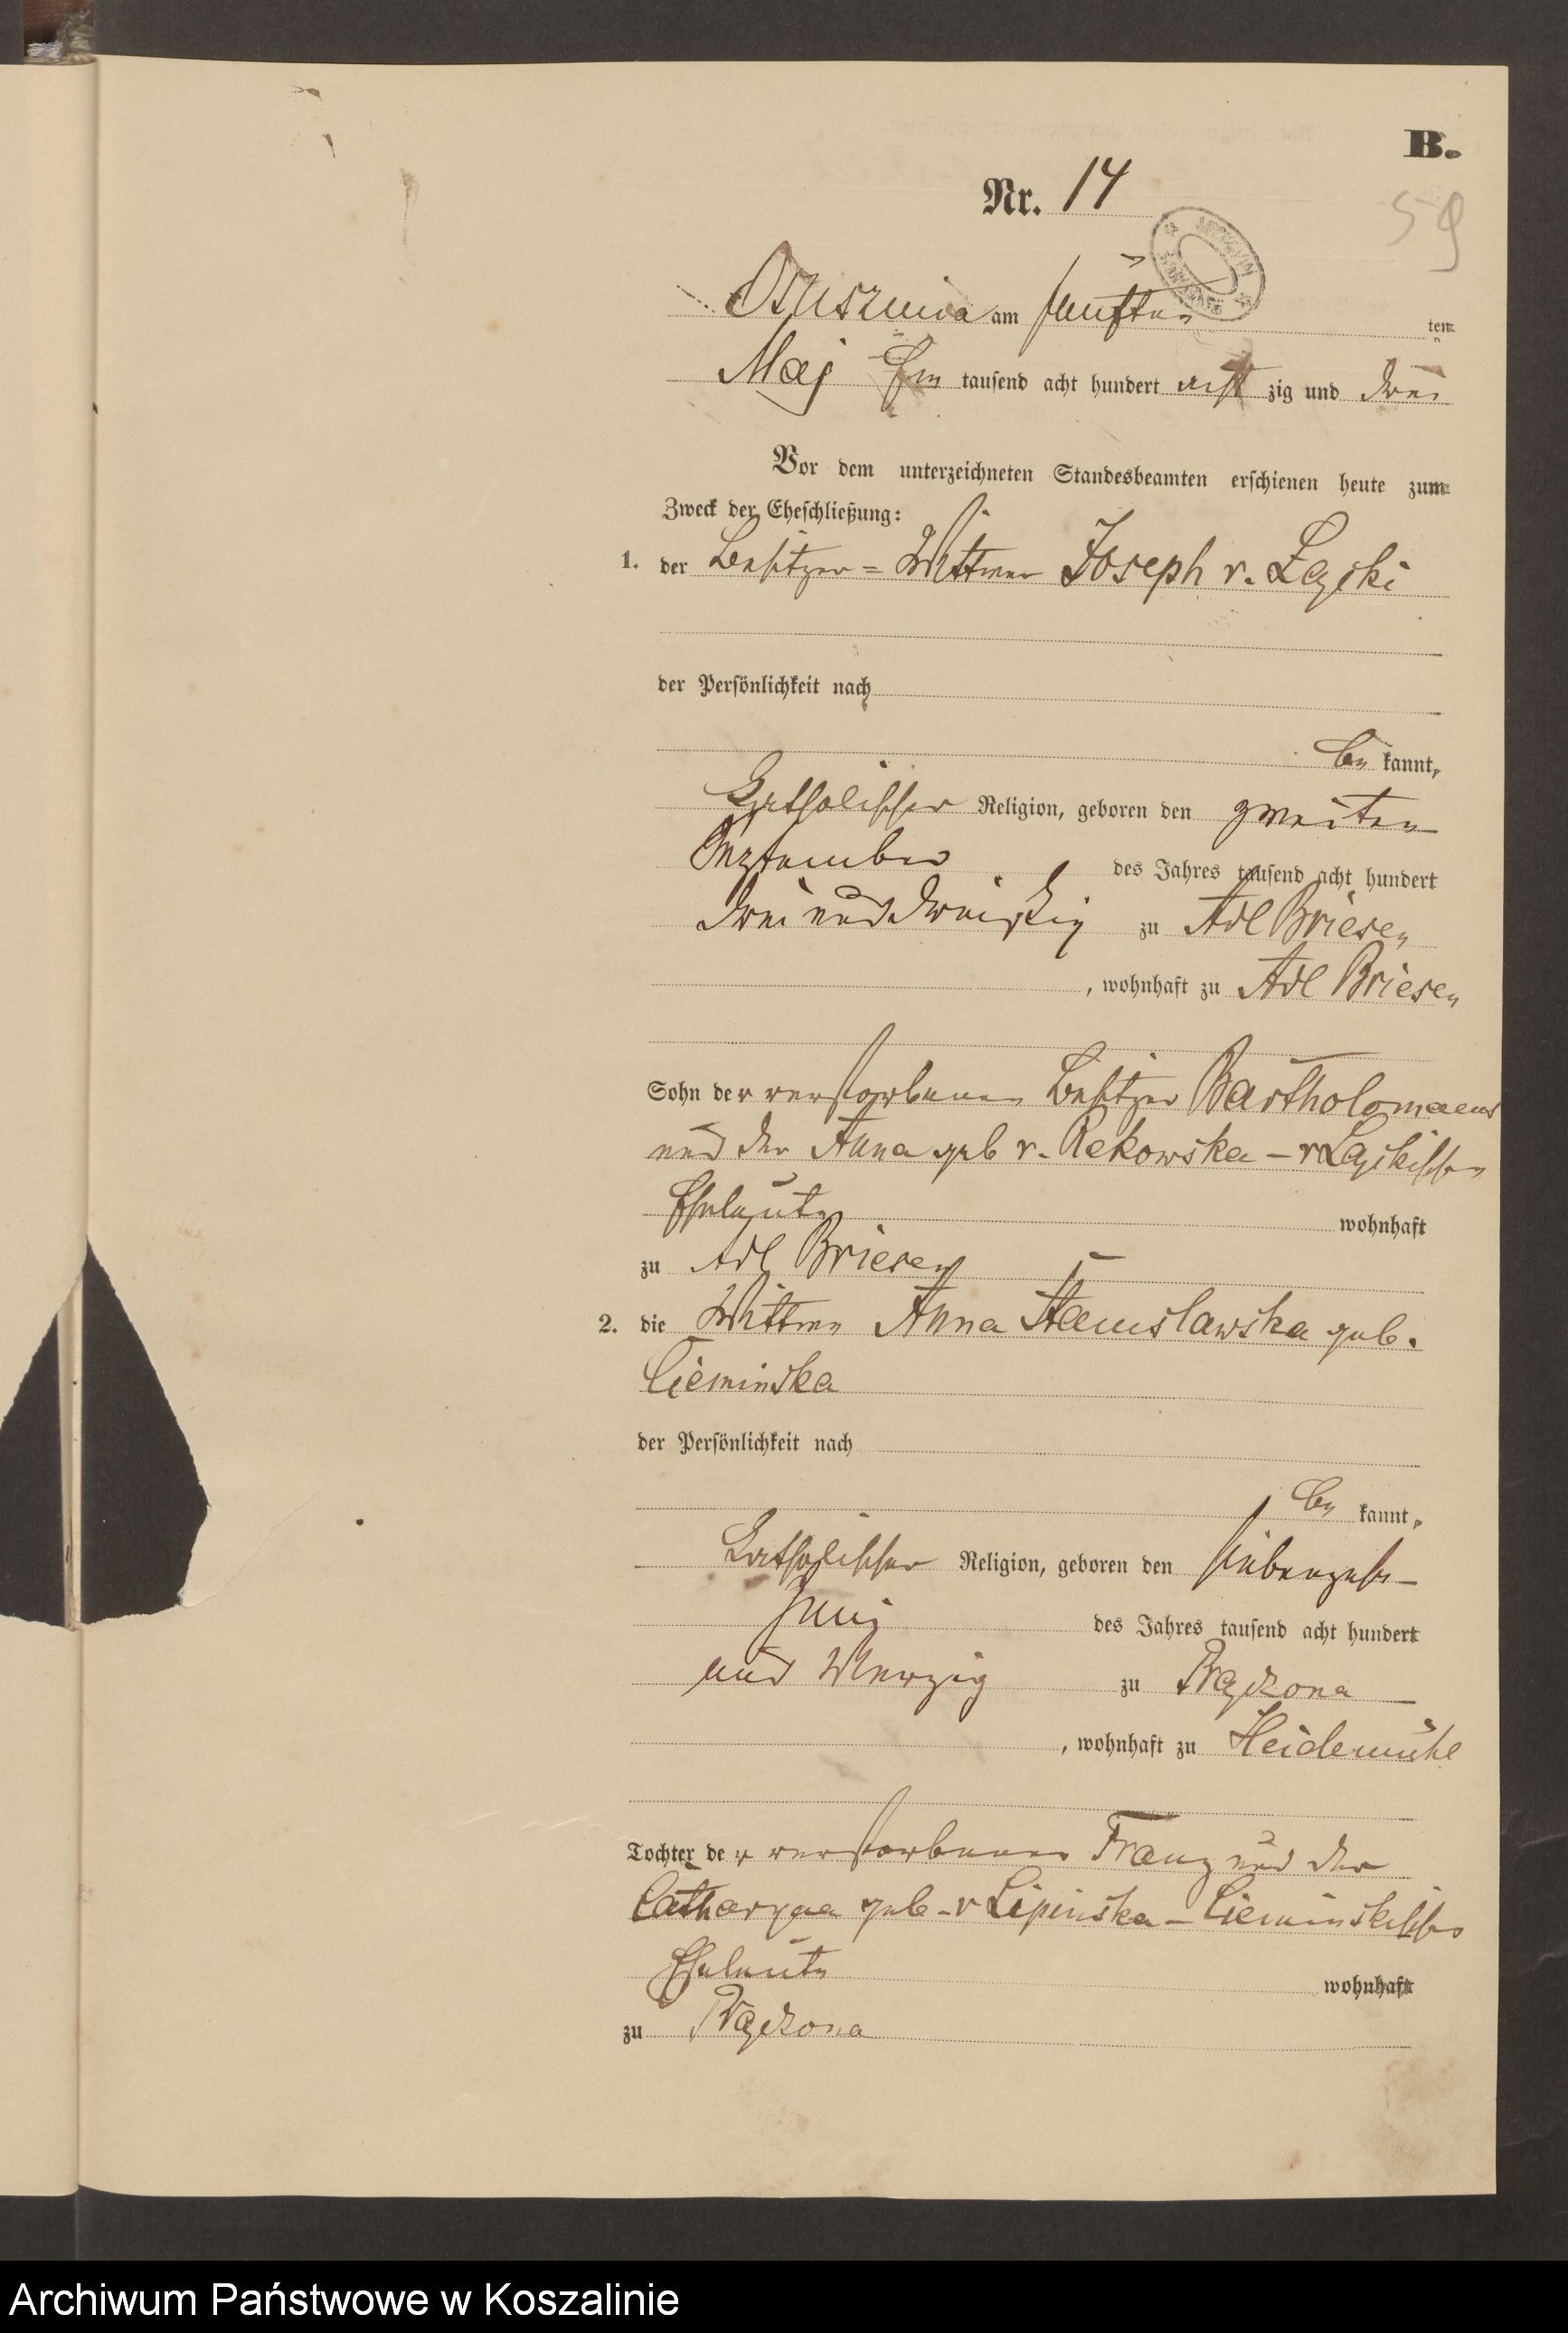 B.
Nr. 14
59
Ossusznica am fünften ten
Maj Ein tausend acht hundert acht zig und drei
Vor dem unterzeichneten Standesbeamten erschienen heute zum
Zweck der Eheschließung:
1. der Besitzer = Wittwer Joseph v.
der Persönlichkeit nach
be kannt,
Katholischer Religion, geboren den zweiten
September des Jahres tausend acht hundert
drei und dreißig zu Adl Briesen
, wohnhaft zu Adl Briesen
Sohn der verstorbenen Besitzer Bartholomaeus
und der Anna geb v. Rekowska –
Eheleute wohnhaft
zu Adl Briesen
2. die Wittwe Anna Stanislawska geb.
Cieminska
der Persönlichkeit nach
be kannt,
Katholischer Religion, geboren den siebenzehn–
Juni des Jahres tausend acht hundert
und Vierzig zu
, wohnhaft zu Heidemühl
Tochter der verstorbenen Franz und der
geb. v Lipinska – Cieminskischen
Eheleute wohnhaft
zu
Archiwum Państwowe w Koszalinie